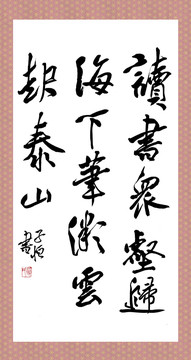 讀書衆壑歸
海下筆微雲
起泰山